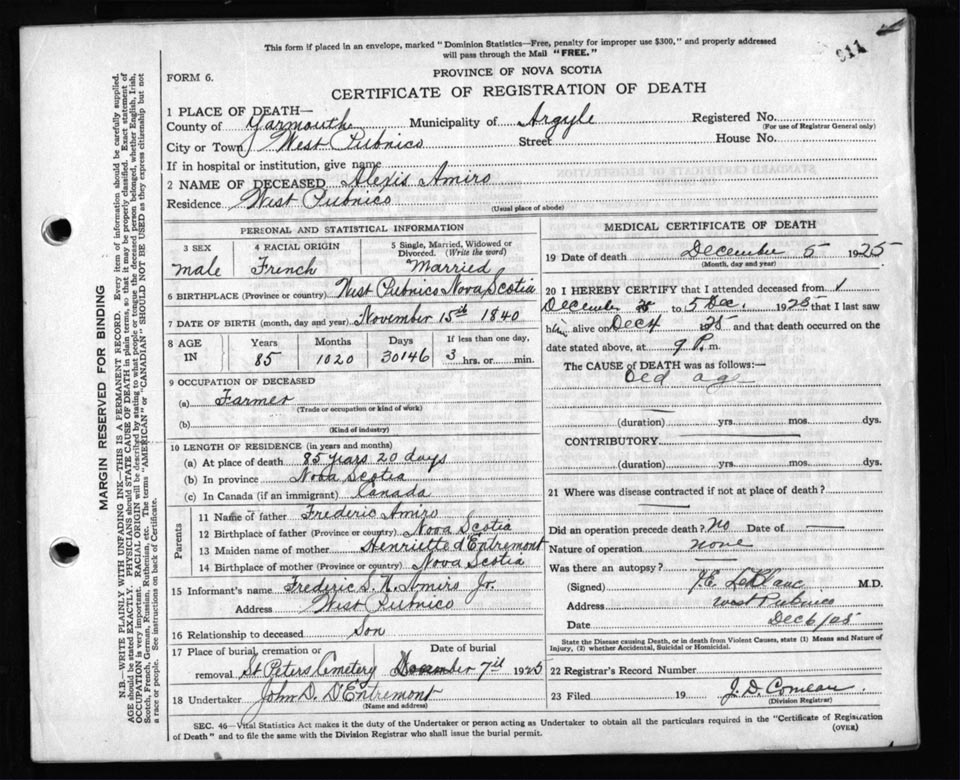 This form if placed in an envelope, marked "Dominion Statistics—Free, penalty for improper use $300," and properly addressed
will pass through the Mail "FREE."
311
PROVINCE OF NOVA SCOTIA
FORM 6.
CERTIFICATE OF REGISTRATION OF DEATH
1 PLACE OF DEATH—
County of Yarmouth Municipality of Argyle Registered No.
(For use of Registrar General only)
City or Town West Pubnico Street House No.
If in hospital or institution, give name
2 NAME OF DECEASED Alexis Amiro
Residence West Pubnico
(Usual place of abode)
PERSONAL AND STATISTICAL INFORMATION
3 SEX 4 RACIAL ORIGIN 5 Single, Married, Widowed or
Divorced. (Write the word)
male French Married
6 BIRTHPLACE (Province or country) West Pubnico Nova Scotia
7 DATE OF BIRTH (month, day and year) November 15th 1840
8 AGE IN Years Months Days If less than one day,
85 1020 30146 3 hrs. or min.
9 OCCUPATION OF DECEASED
(a) Farmer
(Trade or occupation or kind of work)
(b)
(Kind of industry)
10 LENGTH OF RESIDENCE (in years and months)
(a) At place of death 85 years 20 days
(b) In province Nova Scotia
(c) In Canada (if an immigrant) Canada
Parents
11 Name of father Frederic Amiro
12 Birthplace of father (Province or country) Nova Scotia
13 Maiden name of mother Henriette d'Entremont
14 Birthplace of mother (Province or country) Nova Scotia
15 Informant's name Frederic S. N. Amiro Jr.
Address West Pubnico
16 Relationship to deceased Son
17 Place of burial, cremation or Date of burial
removal St Peters Cemetery December 7th 1925
18 Undertaker John D. D'Entremont
(Name and address)
MEDICAL CERTIFICATE OF DEATH
19 Date of death December 5 1925
(Month, day and year)
20 I HEREBY CERTIFY that I attended deceased from 1
December 25 to 5 Dec. 1925 that I last saw
him alive on Dec 4 1925 and that death occurred on the
date stated above, at 9 P. m.
The CAUSE OF DEATH was as follows:—
Old age
(duration) yrs. mos. dys.
CONTRIBUTORY
(duration) yrs. mos. dys.
21 Where was disease contracted if not at place of death?
Did an operation precede death? No Date of
Nature of operation none
Was there an autopsy?
(Signed) J.E. LeBlanc M.D.
Address West Pubnico
Date Dec 6/25
State the Disease causing Death, or in death from Violent Causes, state (1) Means and Nature of
Injury, (2) whether Accidental, Suicidal or Homicidal.
22 Registrar's Record Number
23 Filed 19 J. D. Comeau
(Division Registrar)
SEC. 46—Vital Statistics Act makes it the duty of the Undertaker or person acting as Undertaker to obtain all the particulars required in the "Certificate of Registration
of Death" and to file the same with the Division Registrar who shall issue the burial permit.
(OVER)
MARGIN RESERVED FOR BINDING
N.B.—WRITE PLAINLY WITH UNFADING INK—THIS IS A PERMANENT RECORD. Every item of information should be carefully supplied.
AGE should be stated EXACTLY. PHYSICIANS should STATE CAUSE OF DEATH in plain terms, so that it may be properly classified. Exact statement of
OCCUPATION is very important. RACIAL ORIGIN will be described by stating to what people or tongue the deceased person belonged, whether English, Irish,
Scotch, French, German, Russian, Ruthenian, etc. The terms "AMERICAN" or "CANADIAN" SHOULD NOT BE USED as they express citizenship but not
a race or people. See instructions on back of Certificate.